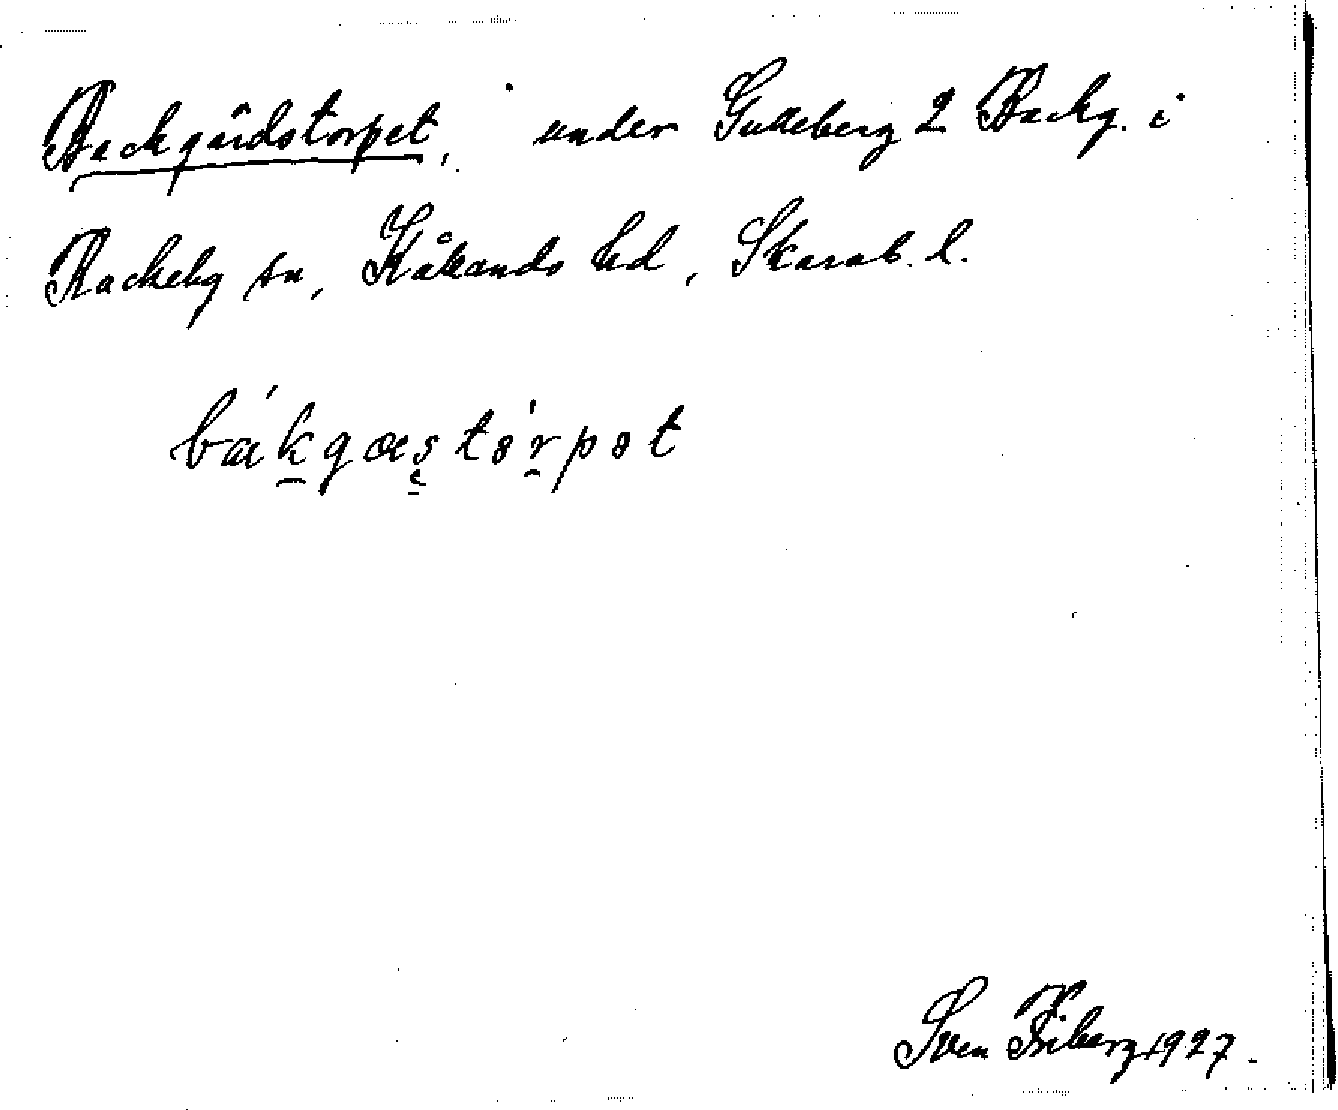 Backgårdstorpet, under Gulleberg 2 Backg. i
Rackeby sn, Kållands hd, Skarab. l.
bákgæstórpet
Sven Friberg 1927.